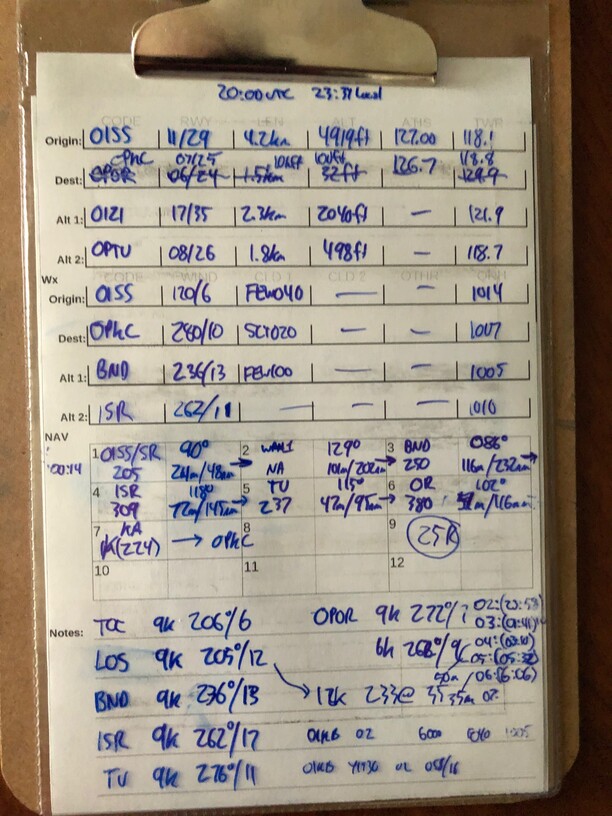 20:00 UTC 23:31 Local
CODE RWY LEN ALT ATIS TWR
Origin: OISS 11/29 4.2km 4919ft 127.00 118.1
OPKC 07/25 10kft 100ft 126.7 118.8
Dest: OPOR 06/24 1.5km 32ft 129.9
Alt 1: OIZI 17/35 2.3km 2040ft — 121.9
Alt 2: OPTU 08/26 1.8km 498ft — 118.7
Wx CODE WIND CLD 1 CLD 2 OTHR QNH
Origin: OISS 120/6 FEW040 — — 1014
Dest: OPKC 280/10 SCT020 — — 1007
Alt 1: BND 236/13 FEW100 — — 1005
Alt 2: ISR 262/11 — — 1010
NAV
1 OISS/SR 90° 2 129° 3 BND 086°
00:14 205 24m/48nm → NA 101m/202nm → 250 116m/232nm →
4 ISR 118° 5 TU 115° 6 OR 102°
309 72m/145nm → 237 47m/95nm → 380
7 KA 8 9
(224) → OPKC 25R
10 11 12
Notes: TOC 9k 206°/6 OPOR 9k 272°/7 02:(20:58)
03:(01:41)
LOS 9k 205°/12 6k 268°/9
BND 9k 236°/13 → 12k 233@35 35m 02
ISR 9k 262°/17 OIKB 02 6000 1005
TU 9k 276°/11 OIKB 02